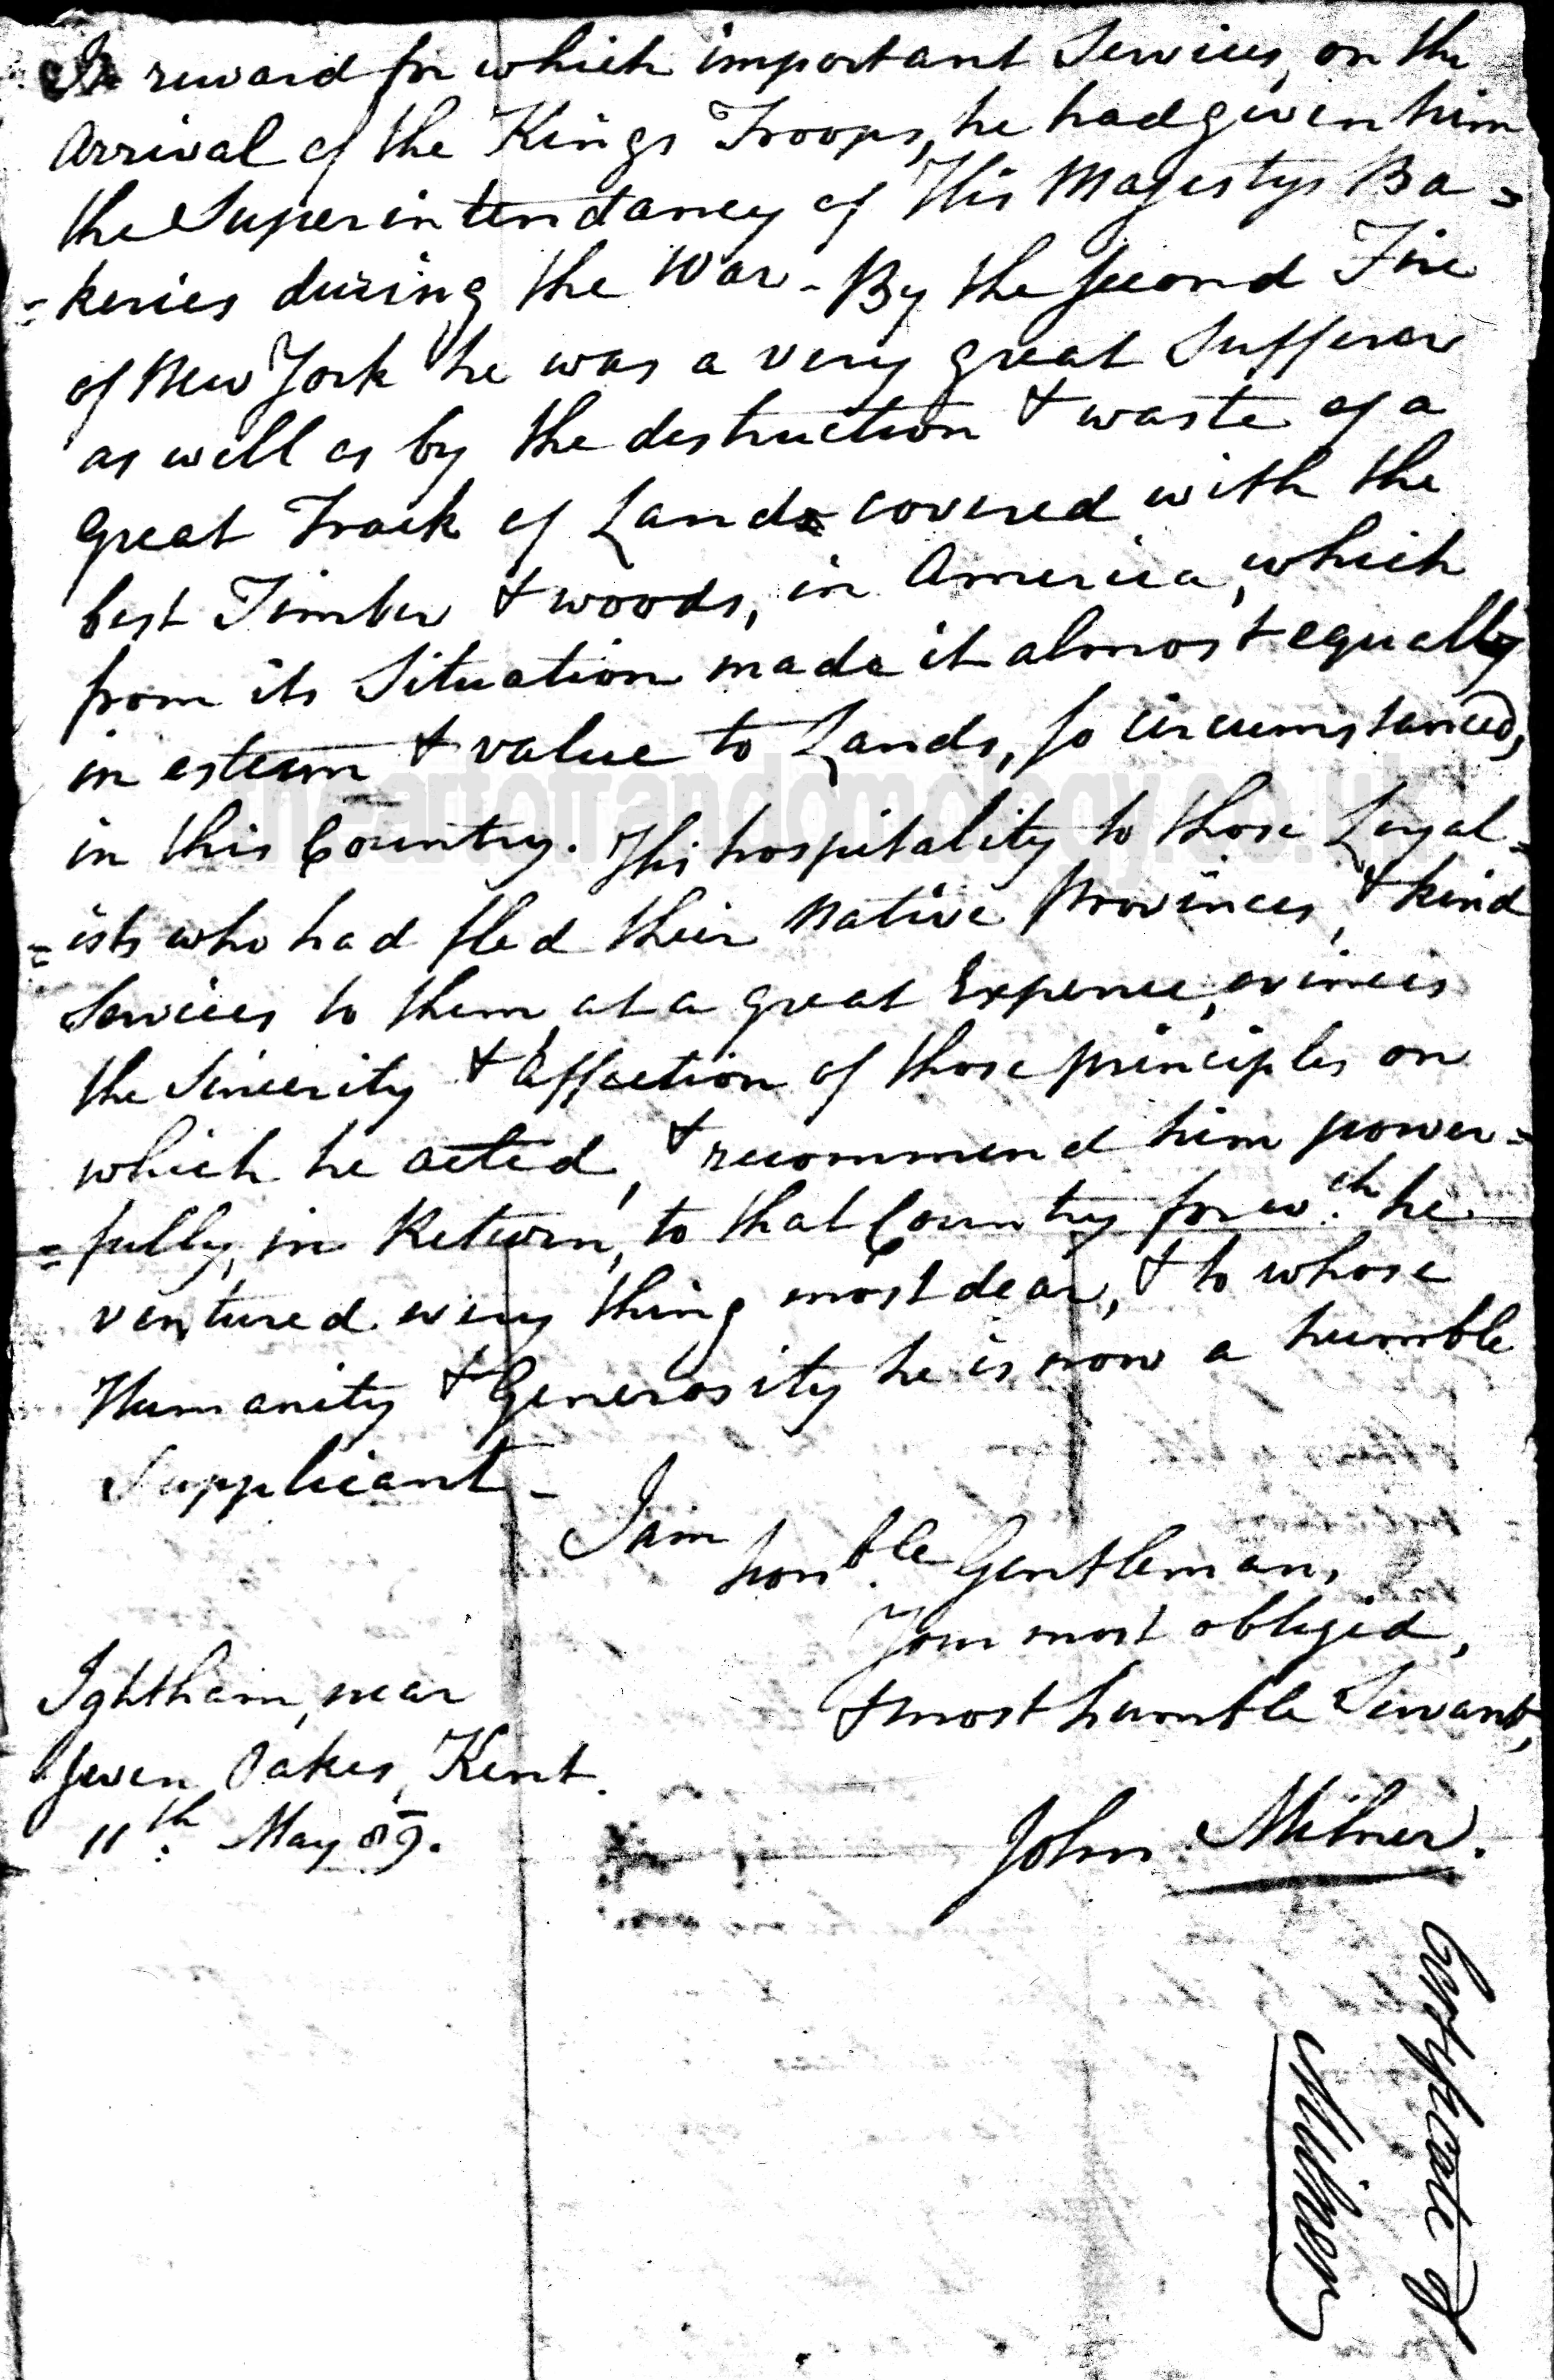 In reward for which important Services, on the
Arrival of the Kings Troops, he had given him
the Superintendancy of His Majestys Ba =
= keries during the War - By the second Fire
of New York he was a very great Sufferer
as well as by the destruction & waste of a
great Track of Lands covered with the
best Timber & woods, in America, which
from its Situation made it almost equally
in esteem & value to Lands, so circumstanced,
in this Country. His hospitality to those Loyal =
= ists who had fled their Native Provinces, & kind
Services to them, at a great Expence, evinces
the Sincerity & Affection of those principles on
which he acted, & recommend him power =
= fully, in Return, to that Country for wch. he
ventured every thing most dear, & to whose
Humanity & Generosity he is now a humble
Supplicant -
I am
honble. Gentleman,
Your most obliged,
& most humble Servant,
John Milner.
Ightham, near
Seven Oakes, Kent.
11th. May 89.
Certificate of
Milner
theartofrandomology.co.uk